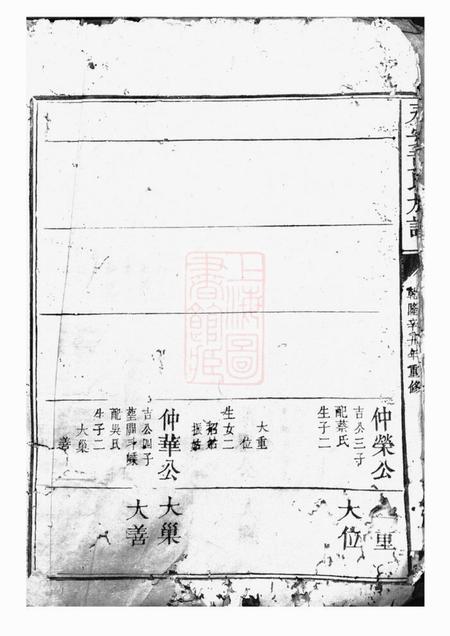 族譜
乾隆辛丑年重修
仲榮公
吉公三子
配蔡氏
生子二
大重
位
生女二
招姑
振姑
仲華公
吉公四子
配吳氏
生子二
大巢
善
重
大位
大巢
大善
上海圖書館藏